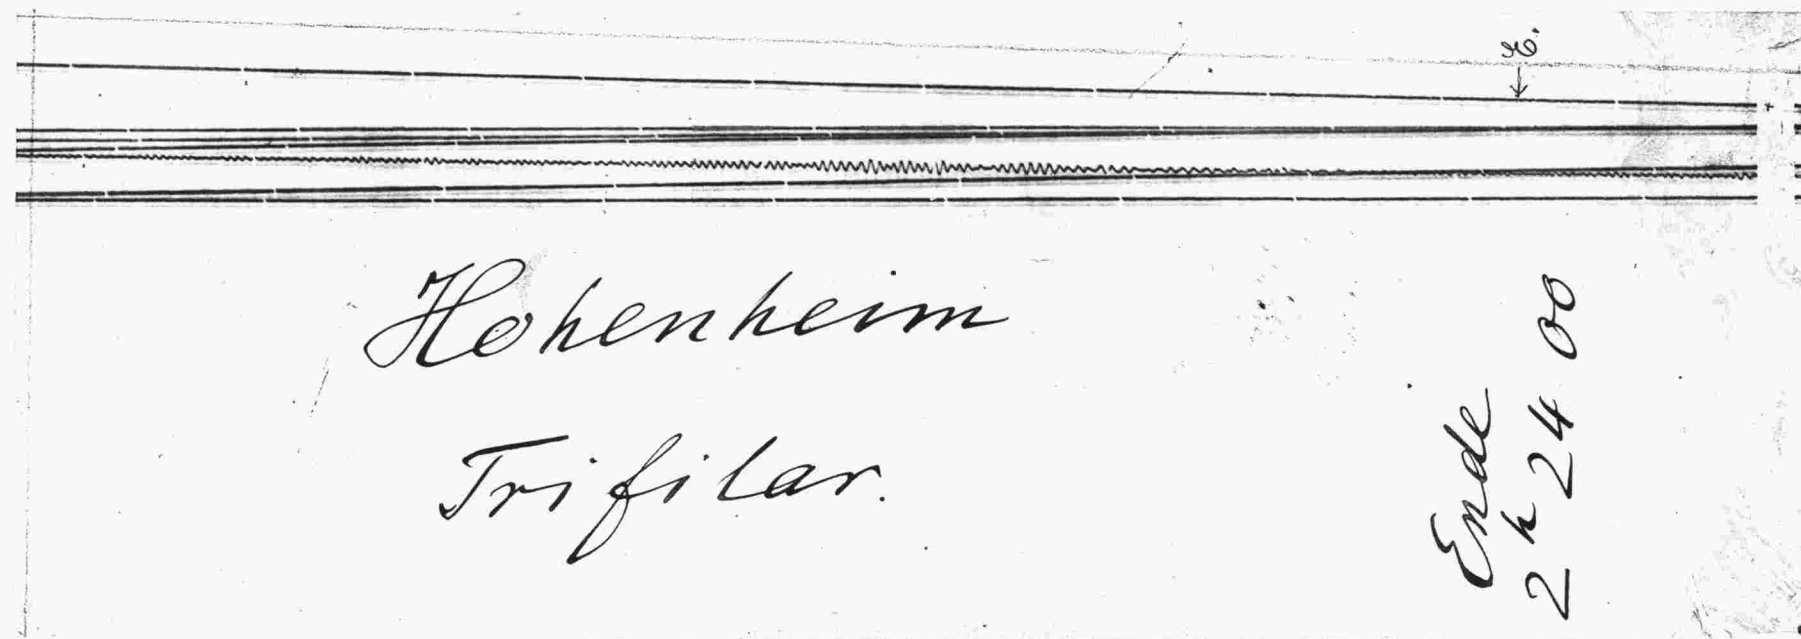 E.
Hohenheim
Trifilar.
Ende
2 h 24 00